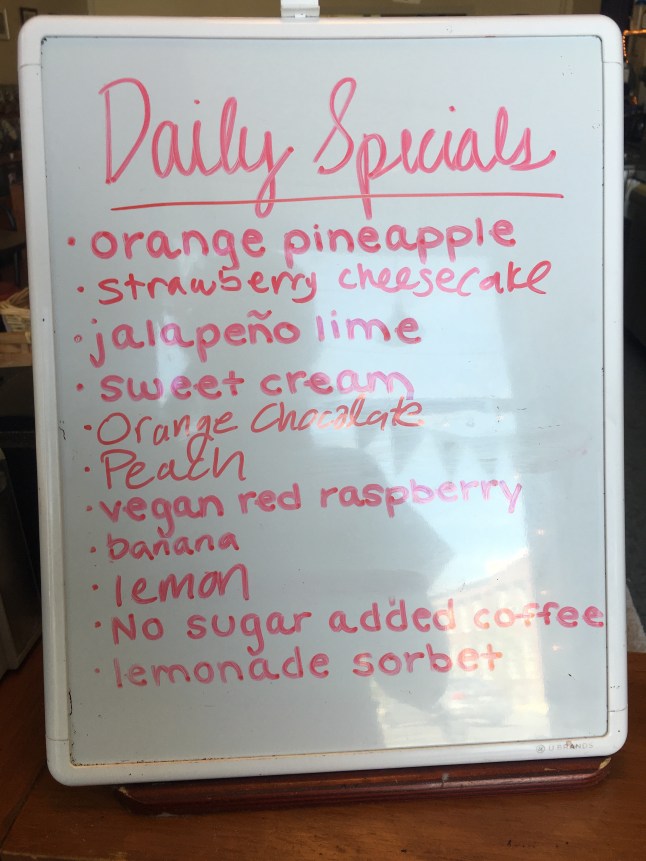 Daily Specials
• orange pineapple
• strawberry cheesecake
• jalapeño lime
• sweet cream
• Orange Chocolate
• Peach
• vegan red raspberry
• banana
• lemon
• No sugar added coffee
• lemonade sorbet
U BRANDS